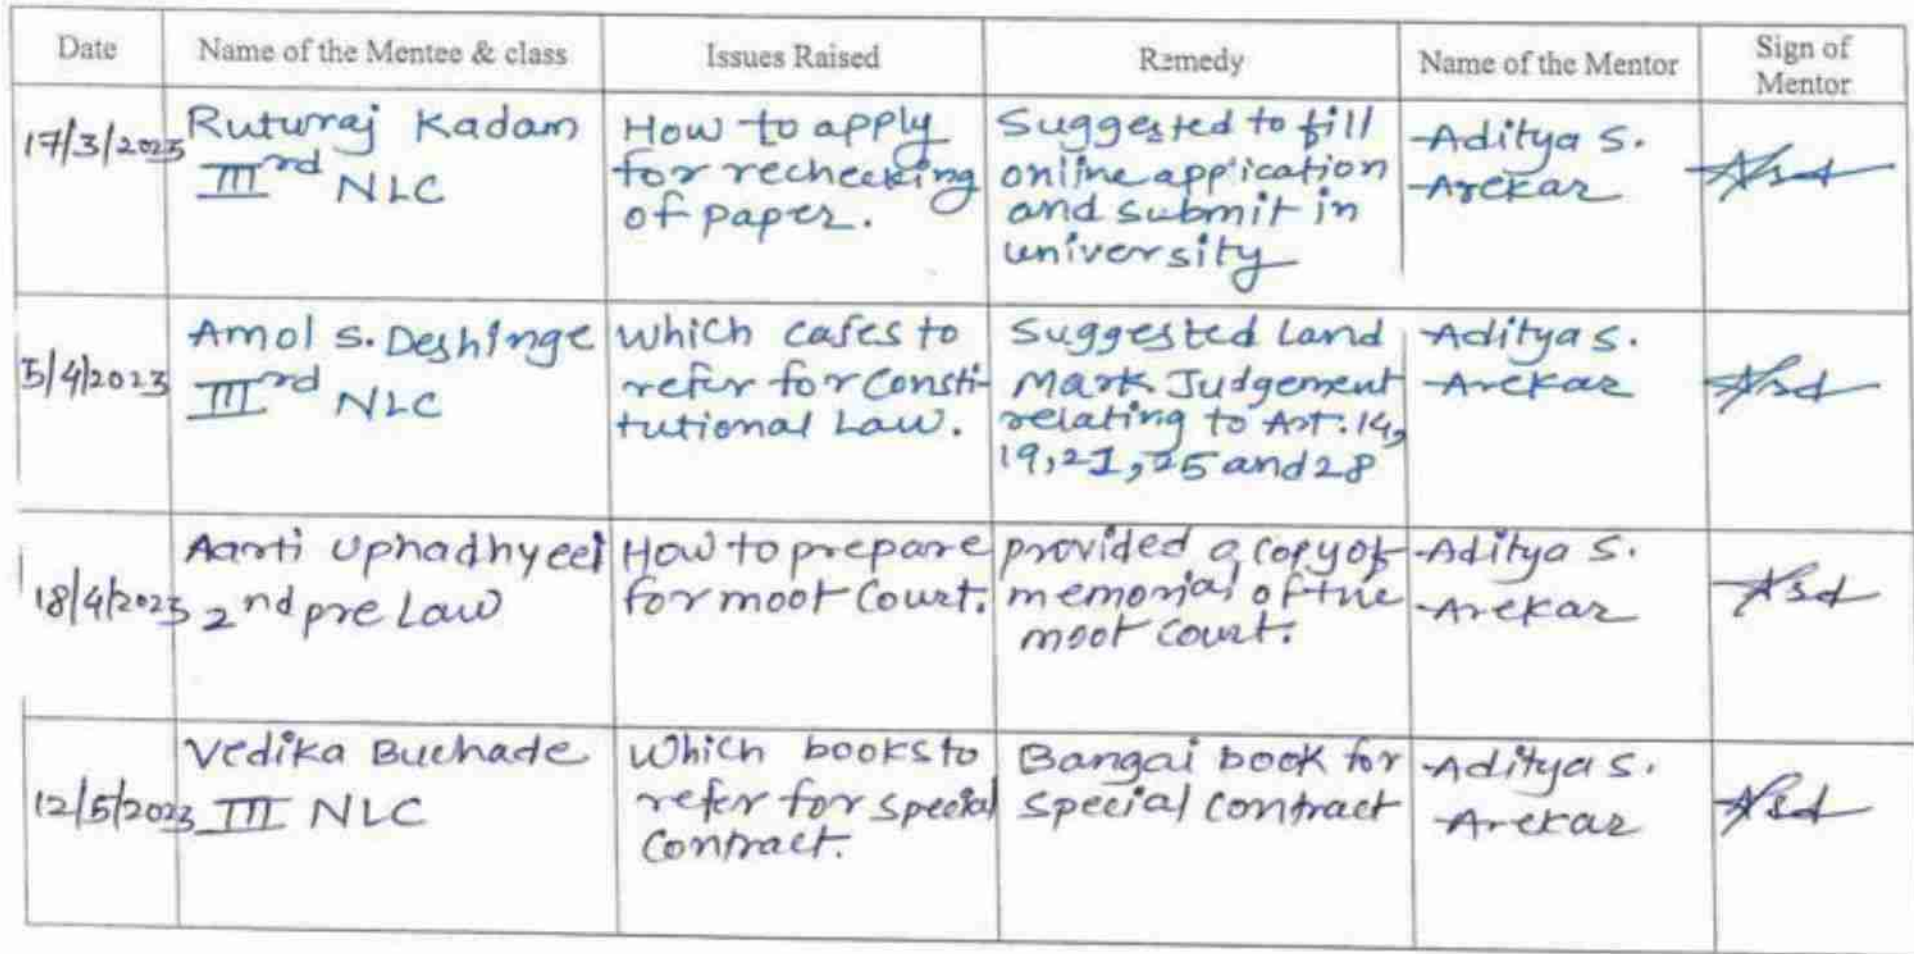 Date
Name of the Mentee & class
Issues Raised
Remedy
Name of the Mentor
Sign of
Mentor
17/3/2023
Ruturaj Kadam
IIIrd NLC
How to apply
for rechecking
of paper.
Suggested to fill
online application
and submit in
university
Aditya S.
Arekar
5/4/2023
Amol S. Deshinge
IIIrd NLC
Which cases to
refer for Consti-
tutional Law.
Suggested Land
Mark Judgement
relating to Art. 14,
19, 21, 25 and 28
Aditya S.
Arekar
18/4/2023
Aarti
2nd pre Law
How to prepare
for moot Court.
provided a copy of
memorial of the
moot court.
Aditya S.
Arekar
12/5/2023
Vedika Buchade
III NLC
Which books to
refer for special
Contract.
Bangai book for
special contract
Aditya S.
Arekar